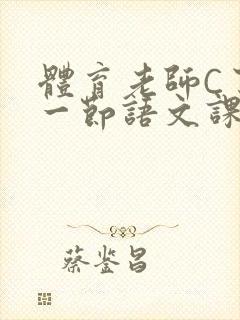 體育老師C了
一節語文課
蔡鉴昌